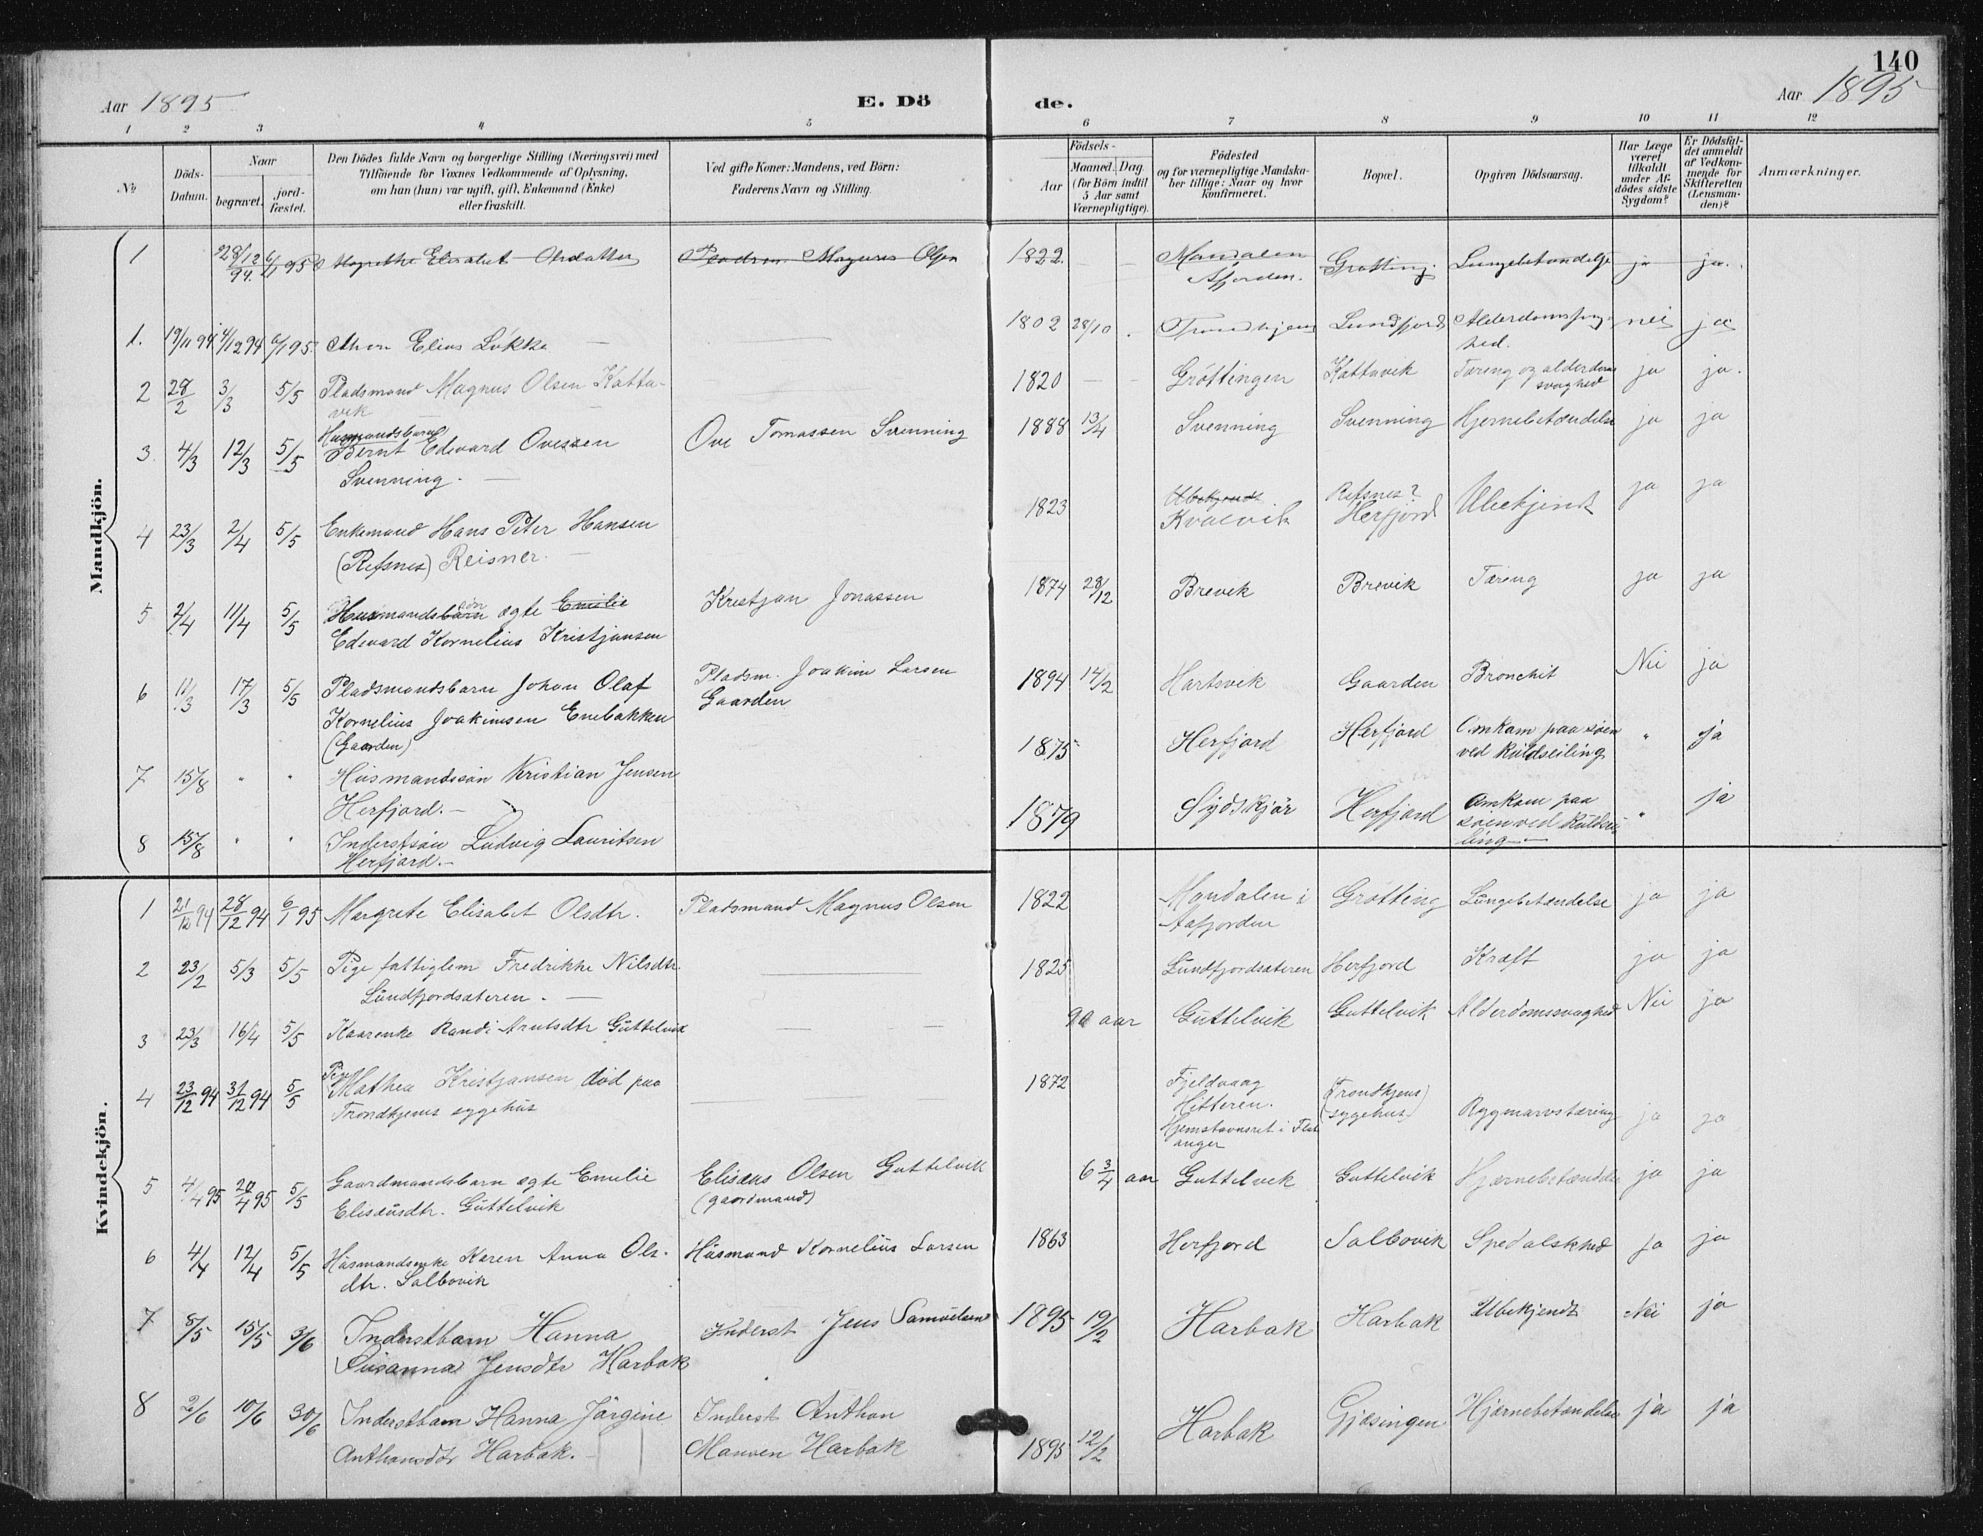 140
Aar 1895
E. Dö
de.
Aar 1895
1 2 3 4 5 6 7 8 9 10 11 12
No
Döds-Datum.
Naar
begravet.
jord-fæstet.
Den Dödes fulde Navn og borgerlige Stilling (Næringsvei) med
Tilföiende for Voxnes Vedkommende af Oplysning,
om han (hun) var ugift, gift, Enkemand (Enke)
eller fraskilt.
Ved gifte Koner: Mandens, ved Börn:
Faderens Navn og Stilling.
Födsels-
Aar
Maaned. Dag
(for Börn indtil
5 Aar samt
Værnepligtige).
Födested
og for værnepligtige Mandska-
ber tillige: Naar og hvor
konfirmeret.
Bopæl.
Opgiven Dödsaarsag.
Har Læge
været
tilkaldt
under Af-
dödes sidste
Sygdom?
Er Dödsfal-
det anmeldt
af Vedkom-
mende for
Skifteretten
(Lensman-
den)?
Anmærkninger.
Mandkjön.
1 28/12 94. 6/1 95 Magrethe Elisabet Olsdatter Pladsm. Magnus Olsen 1822 Mandalen Grøtting Lungebetændelse ja ja.
Afjorden.
1. 19/11 94 4/12 94 6/1 95 Elias Løkke 1802 28/10 Trondhjem Lundfjord nei ja
hed.
2 28/2 3/3 5/5 Pladsmand Magnus Olsen Katta- 1820 Gröttingen Kattavik Tæring og alderdoms ja ja.
vik svaghed
Husmandsbarn
3 4/3 12/3 5/5 Bernt Edevard Ovessen Ove Tomassen Svenning 1888 13/4 Svenning Svenning Hjernebetændelse ja ja
Svenning.
4 23/3 2/4 5/5 Enkemand Hans Peter Hansen 1823 Ubekjendt Refsnes? Ubekjendt ja ja
(Refsnes) Reisner. Kvalvik Herfjord
5 2/4 11/4 5/5 Husmandsbarn søn ægte Emilie Kristjan Jonassen 1874 28/12 Brevik Brevik Tæreng ja ja
Edevard Kornelius Kristjansen
6 11/3 17/3 5/5 Pladsmandsbarn Johan Olaf Pladsm. Joakim Larsen 1894 14/2 Hartsvek Gaarden Bronchit Nei ja
Kornelius Joakimsen Enebakken Gaarden
(Gaarden)
7 15/8 " " Husmandssön Kristian Jensen 1875 Herfjord Herfjord Omkom paa søen " ja
Herfjord.- ved Kuldseiling
8 15/8 " " Inderstsön Ludvig Lauritsen 1879 Sydskjör Herfjord Omkom paa " ja
Herfjord.- søen ved Kuldsei
ling
Kvindekjön.
1 21/12 94 28/12 94 6/1 95 Margrete Elisabet Olsdtr. Pladsmand Magnus Olsen 1822 Mandalen i Grøtting Lungebetændelse ja ja
Aafjorden
2 23/2 5/3 5/5 Pige fattiglem Fredrikke Nilsdtr. 1825 Lundfjordsæteren Herfjord Kræft ja ja
Lundfjordsæteren.
3 23/3 16/4 5/5 Kaarenke Randi Arntsdtr Guttelvik 90 aar Guttelvik Guttelvik Alderdomssvaghed Nei ja
4 23/12 94 31/12 94 5/5 Pige Mathea Kristjansen, død paa 1872 Fjeldvaag (Trondhjems Rygmarvstæring ja ja
Trondhjems sygehus Hitteren. sygehus)
Hjemstavnsret i Flat
anger
5 4/4 95 20/4 95 5/5 Gaardmandsbarn ægte Emelie Eliseus Olsen Guttelvik 6 3/4 aar Guttelvek Guttelvik Hjærnebetændelse ja ja
Eliseusdtr. Guttelvik (gaardmand)
6 4/4 12/4 5/5 Husmandsenke Karen Anna Ols- Husmand Kornelius Larsen 1863 Herfjord Salbovik Spedalskhed ja ja
dtr. Salbovik
7 8/5 15/5 3/6 Inderstbarn Hanna Inderst Jens Samuelsen 1895 19/2 Harbak Harbak Ubekjendt Nei ja
Susanna Jensdtr Harbak
8 2/6 10/6 30/6 Inderstbarn Hanna Jörgine Inderst Anthon 1895 12/2 Harbak Gjæsingen Hjærnebetændelse ja ja
Anthonsdtr Harbak. Harbak